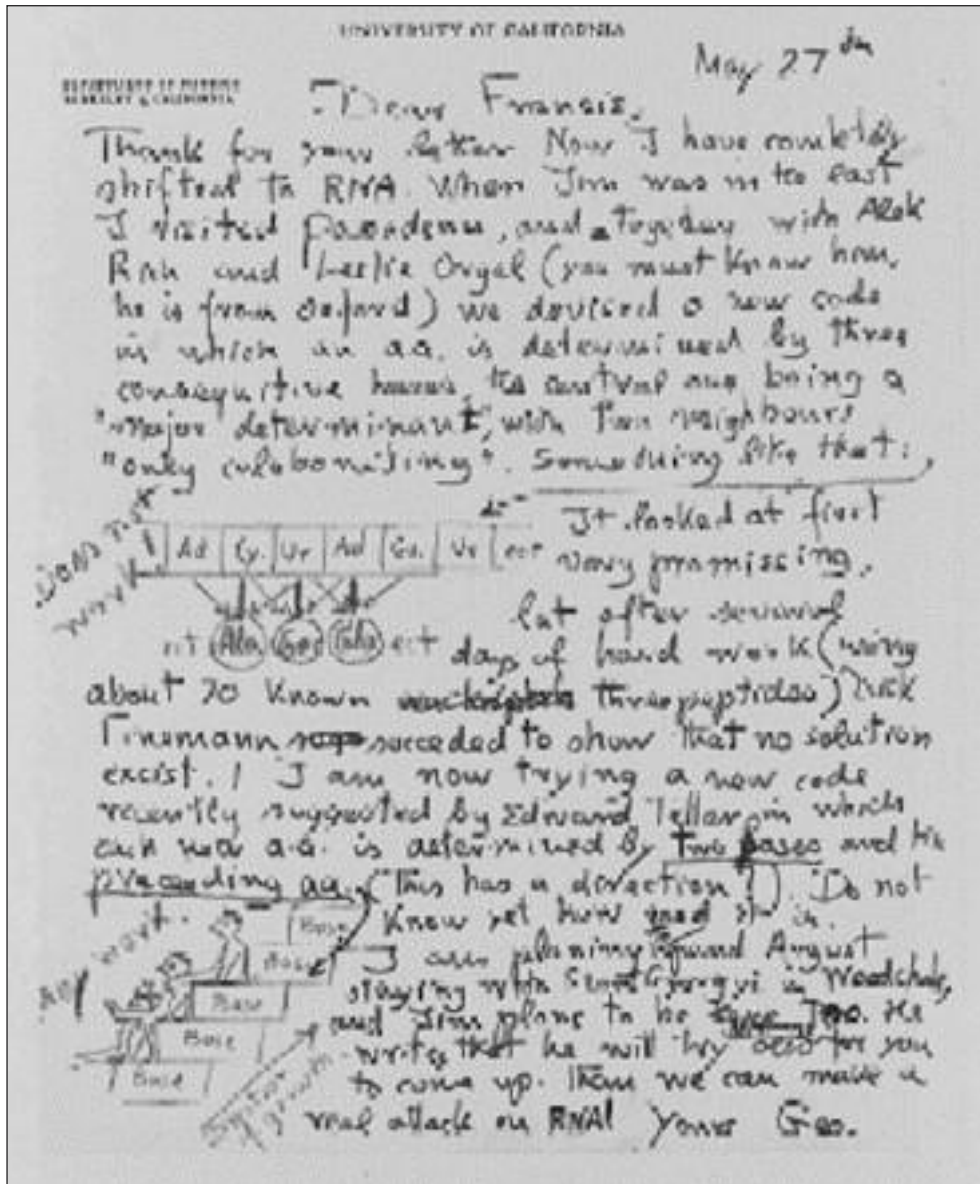 UNIVERSITY OF CALIFORNIA
May 27th
DEPARTMENT OF PHYSICS
BERKELEY 4 CALIFORNIA
Dear Fransis.
Thank for your letter Now I have completly
shifted to RNA. When Jim was in the east
I visited Pasadena, and together with Alek
Rich and Leslie Orgel (you must know him,
he is from Oxford) we devised a new code
in which an a.a. is determined by three
consequitive bases, the central one being a
"major determinant", with two neighbours
"only colaborating". Something like that:
It looked at first
very promissing.
Does not
work!
Ad Cy. Ur Ad Gu. Ur ect
but after several
ect Ala Ger ect days of hard work (using
about 20 known threepeptides) Dick
succeded to show that no solution
excist. I am now trying a new code
recently suggested by Edward Teller in which
each new a.a. is determined by two bases and the
preceeding aa. (This has a direction!). Do not
know yet how good it is.
may work.
Base
Base
Base
Base
Base
I am planing around August
staying with in Woodshole,
and Jim plans to be too. He
writes that he will try also for you
to come up. Then we can make a
of growth
real attack on RNA! Yours Geo.